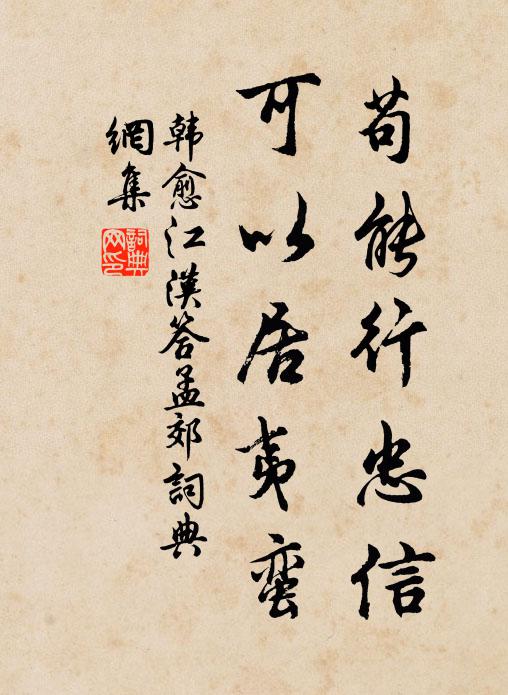 苟能行忠信
可以居夷蛮
韩愈江漢答孟郊詞典
網集
詞典網印